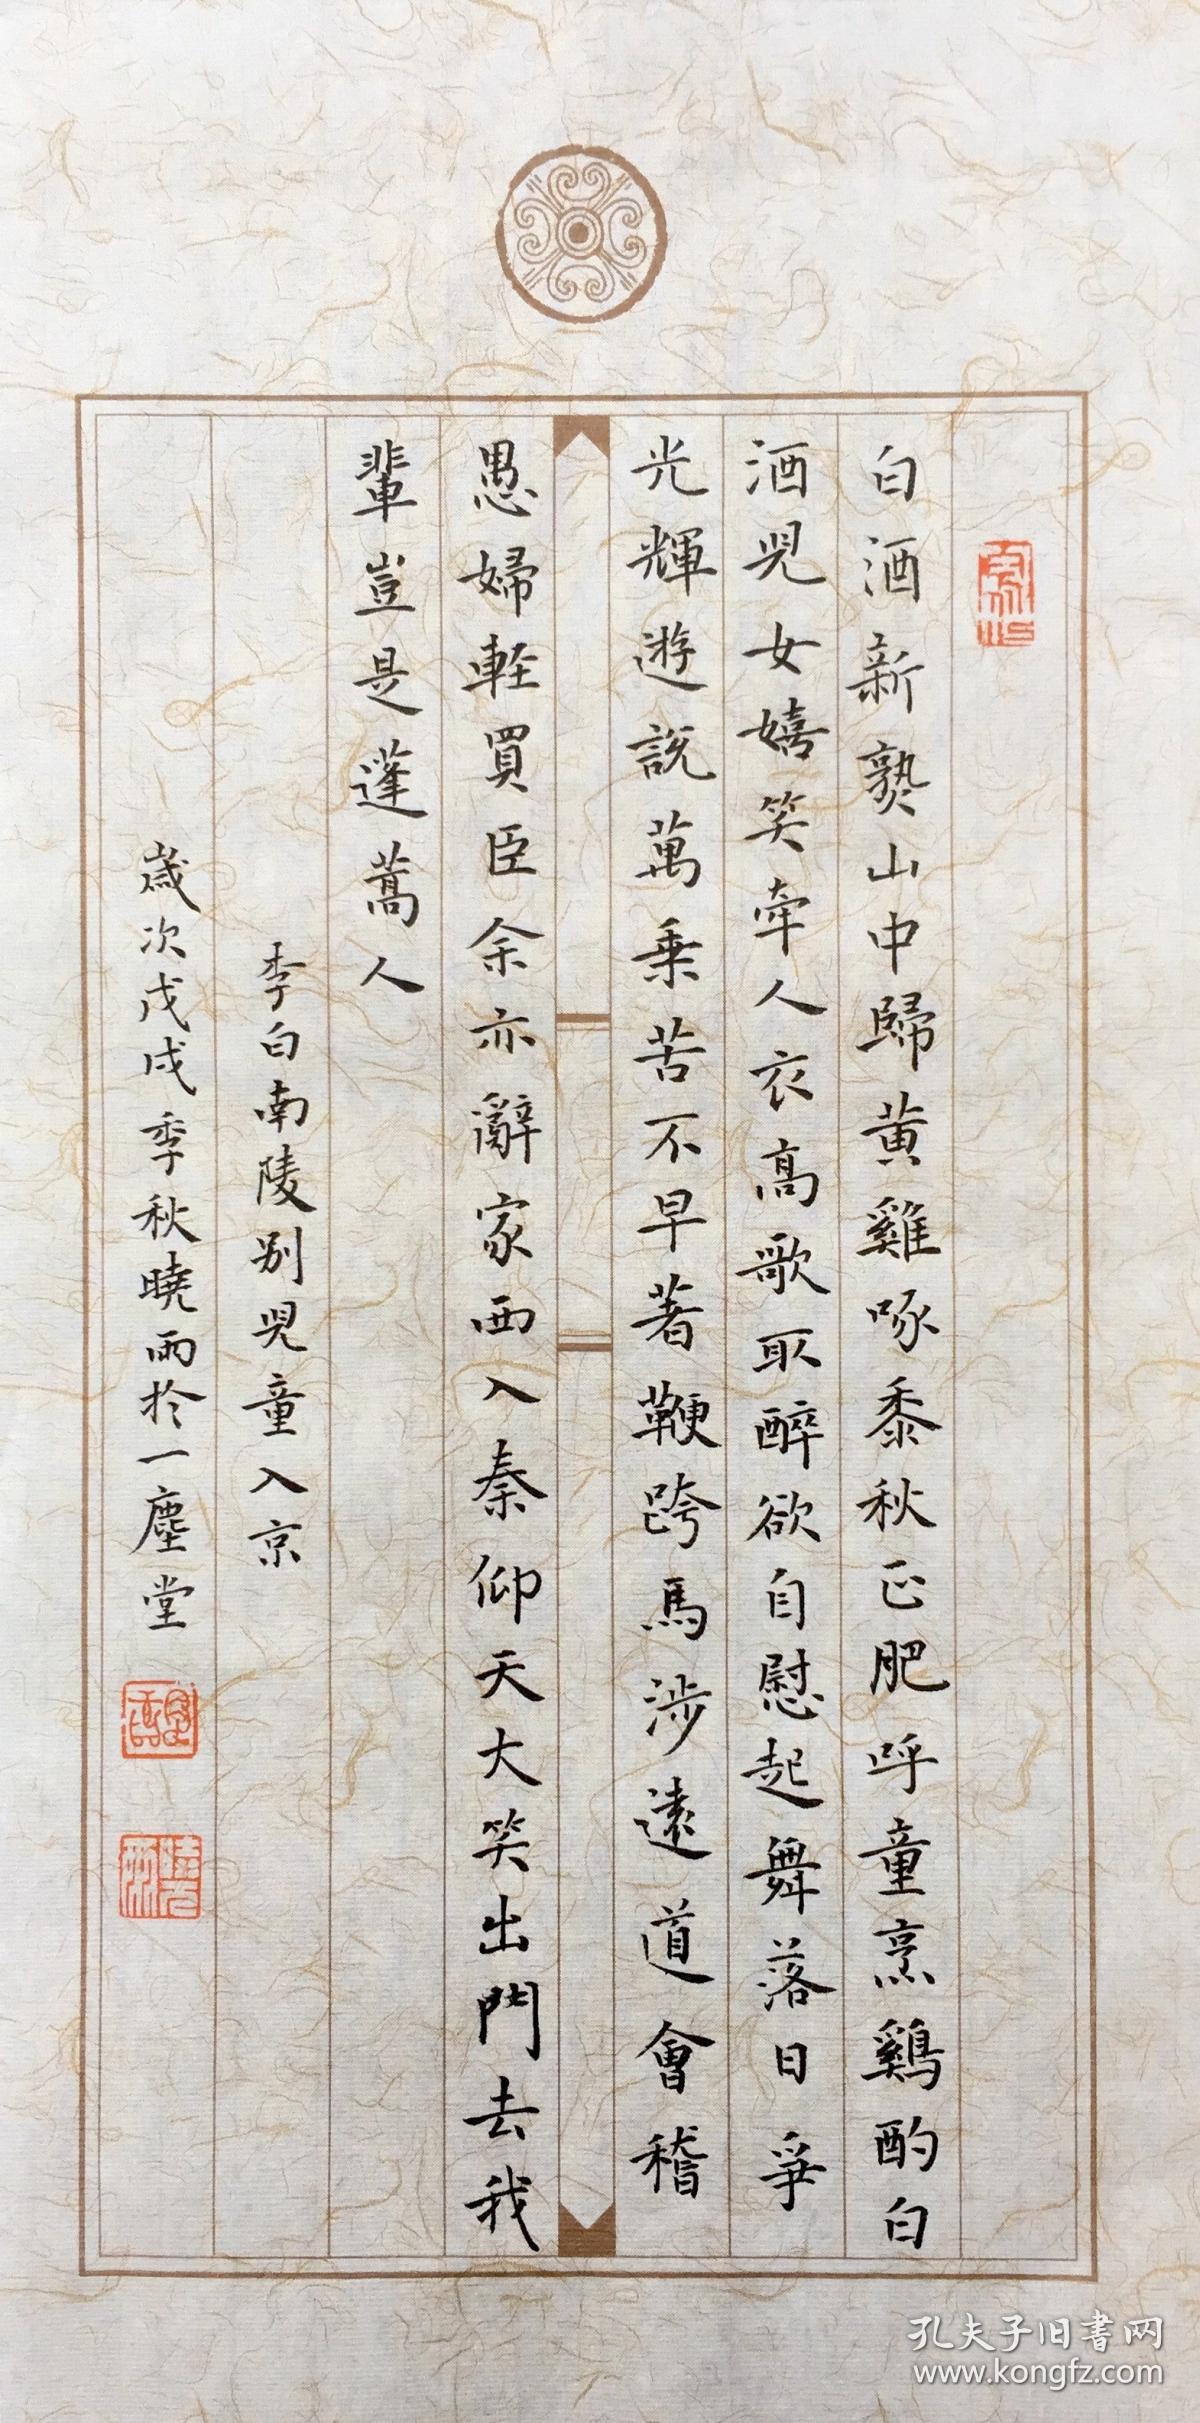 白酒新熟山中歸黄雞啄黍秋正肥呼童烹鷄酌白
酒兒女嬉笑牽人衣高歌取醉欲自慰起舞落日爭
光輝遊説萬乗苦不早著鞭跨馬涉遠道會稽
愚婦軽買臣余亦辭家西入秦仰天大笑出門去我
輩豈是蓬蒿人
李白南陵别兒童入京
歲次戊戌季秋曉雨於一塵堂
曉雨
孔夫子旧書网
www.kongfz.com